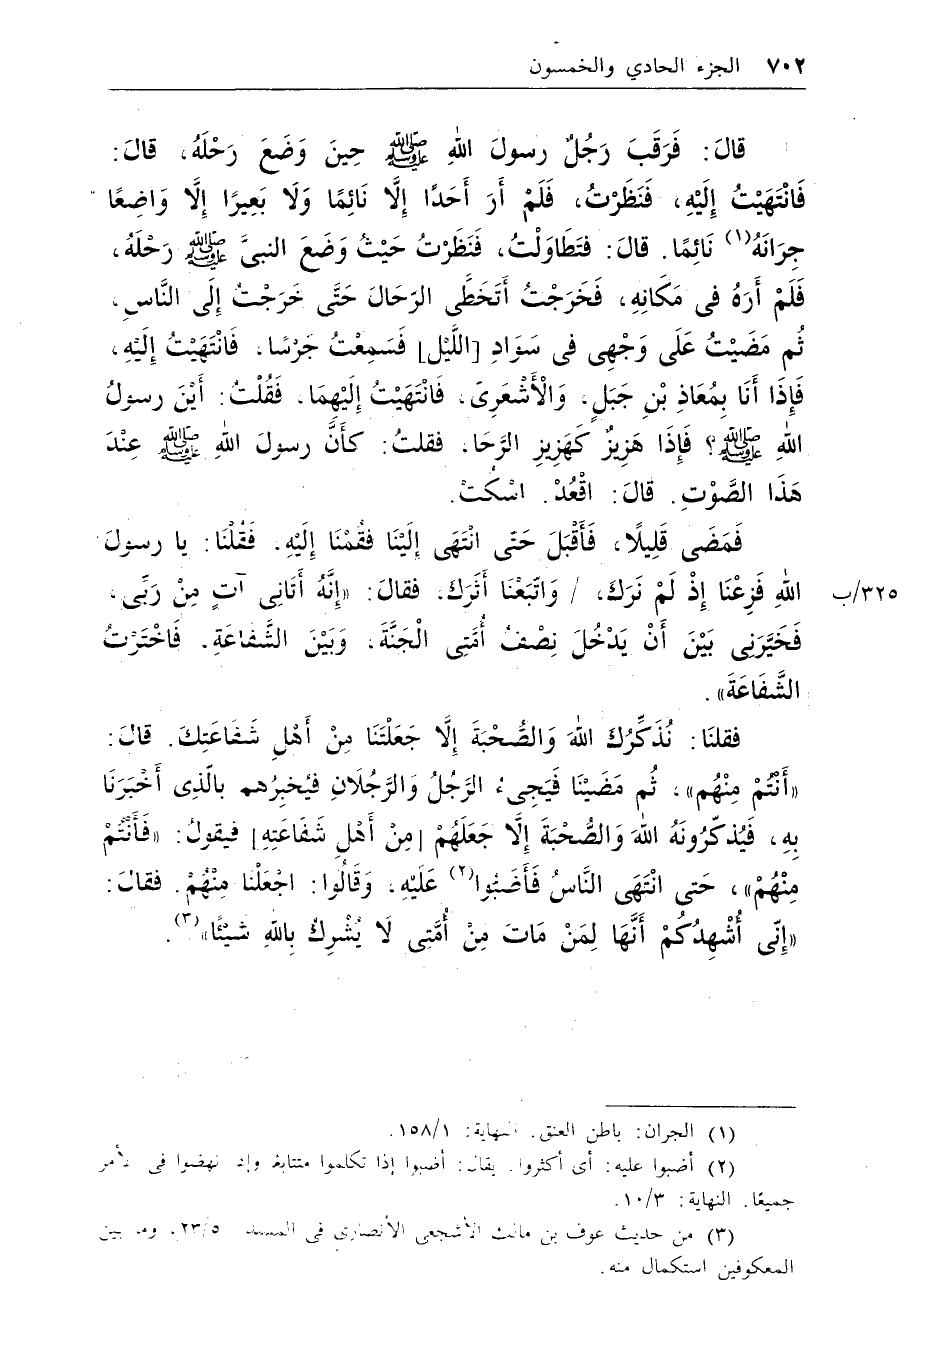 ٧٠٢ الجزء الحادي والخمسون
قالَ: فَرَقَبَ رَجُلٌ رسولَ اللهِ ﷺ حِينَ وَضَعَ رَحْلَهُ، قالَ:
فَانْتَهَيْتُ إِلَيْهِ، فَنَظَرْتُ، فَلَمْ أَرَ أَحَدًا إِلَّا نَائِمًا وَلَا بَعِيرًا إِلَّا وَاضِعًا
جِرَانَهُ(١) نَائِمًا. قالَ: فَتَطَاوَلْتُ، فَنَظَرْتُ حَيْثُ وَضَعَ النبىَّ ﷺ رَحْلَهُ،
فَلَمْ أَرَهُ فى مَكَانِهِ، فَخَرَجْتُ أَتَخَطَّى الرّحَالَ حَتَّى خَرَجْتُ إِلَى النَّاسِ،
ثُم مَضَيْتُ عَلَى وَجْهِى فى سَوَادِ [اللَّيْل] فَسَمِعْتُ جَرْسًا، فَانْتَهَيْتُ إِلَيْهِ،
فَإِذَا أَنَا بِمُعَاذِ بْنِ جَبَلٍ، وَالْأَشْعَرِىّ، فَانْتَهَيْتُ إِلَيْهِمَا، فَقُلْتُ: أَيْنَ رسولُ
اللهِ ﷺ؟ فَإِذَا هَزِيزٌ كَهَزِيزِ الرَّحَا، فقلتُ: كأَنَّ رسولَ اللهِ ﷺ عِنْدَ
هَذَا الصَّوْتِ. قَالَ: اقْعُدْ. اسْكُتْ.
فَمَضَى قَلِيلًا، فَأَقْبَلَ حَتَى انْتَهَى إِلَيْنَا فقُمْنَا إِلَيْهِ. فَقُلْنَا: يا رسولَ
اللهِ فَزِعْنَا إِذْ لَمْ نَرَكَ، / وَاتبَعْنَا أَثَرَكَ، فقالَ: «إِنَّهُ أَتَانِى آتٍ مِنْ رَبِّى، ٣٢٥/ب
فَخَيَّرَنِى بَيْنَ أَنْ يَدْخُلَ نِصْفُ أُمَتِى الْجَنَّةَ، وَبَيْنَ الشَّفَاعَةِ. فَاخْتَرْتُ
الشَّفَاعَةَ».
فقلنَا: نُذَكِّرُكَ اللهَ وَالصُّحْبَةَ إِلَّا جَعَلْتَنَا مِنْ أَهْلِ شَفَاعَتِكَ. قالَ:
«أَنْتُمْ مِنْهُم»، ثُم مَضَيْنَا فَيَجِىءُ الرَّجُلُ وَالرَّجُلَانِ فيُخبِرُهم بالّذِى أَخْبَرَنَا
بِهِ، فَيُذكّرُونَهُ اللهَ وَالصُّحْبَةَ إِلَّا جَعَلَهُمْ [مِنْ أَهْلِ شَفَاعَتِهِ] فيقولُ: «فَأَنْتُمْ
مِنْهُمْ»، حَتى انْتَهَى النَّاسُ فَأَضَبُّوا(٢) عَلَيْهِ، وَقَالُوا: اجْعَلْنَا مِنْهُمْ. فقالَ:
«إِنّى أُشْهِدُكُمْ أَنَّهَا لِمَنْ مَاتَ مِنْ أُمَّتِى لَا يُشْرِكُ بِاللهِ شَيْئًا»(٣).
(١) الجران: باطن العنق. النهاية: ١٥٨/١.
(٢) أضبوا عليه: أى أكثروا. يقال: أضبوا إذا تكلموا متتابعًا وإذا نهضوا فى الأمر
جميعًا. النهاية: ١٠/٣.
(٣) من حديث عوف بن مالك الأشجعى الأنصارى فى المسند ٢٣/٥، وما بين
المعكوفين استكمال منه.